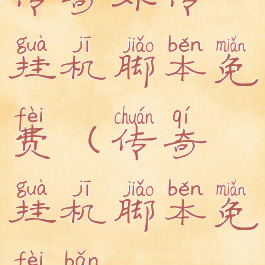 传奇外传
guà jī jiǎo běn miǎn
挂机脚本免
fèi chuán qí
费（传奇
guà jī jiǎo běn miǎn
挂机脚本免
fèi bǎn